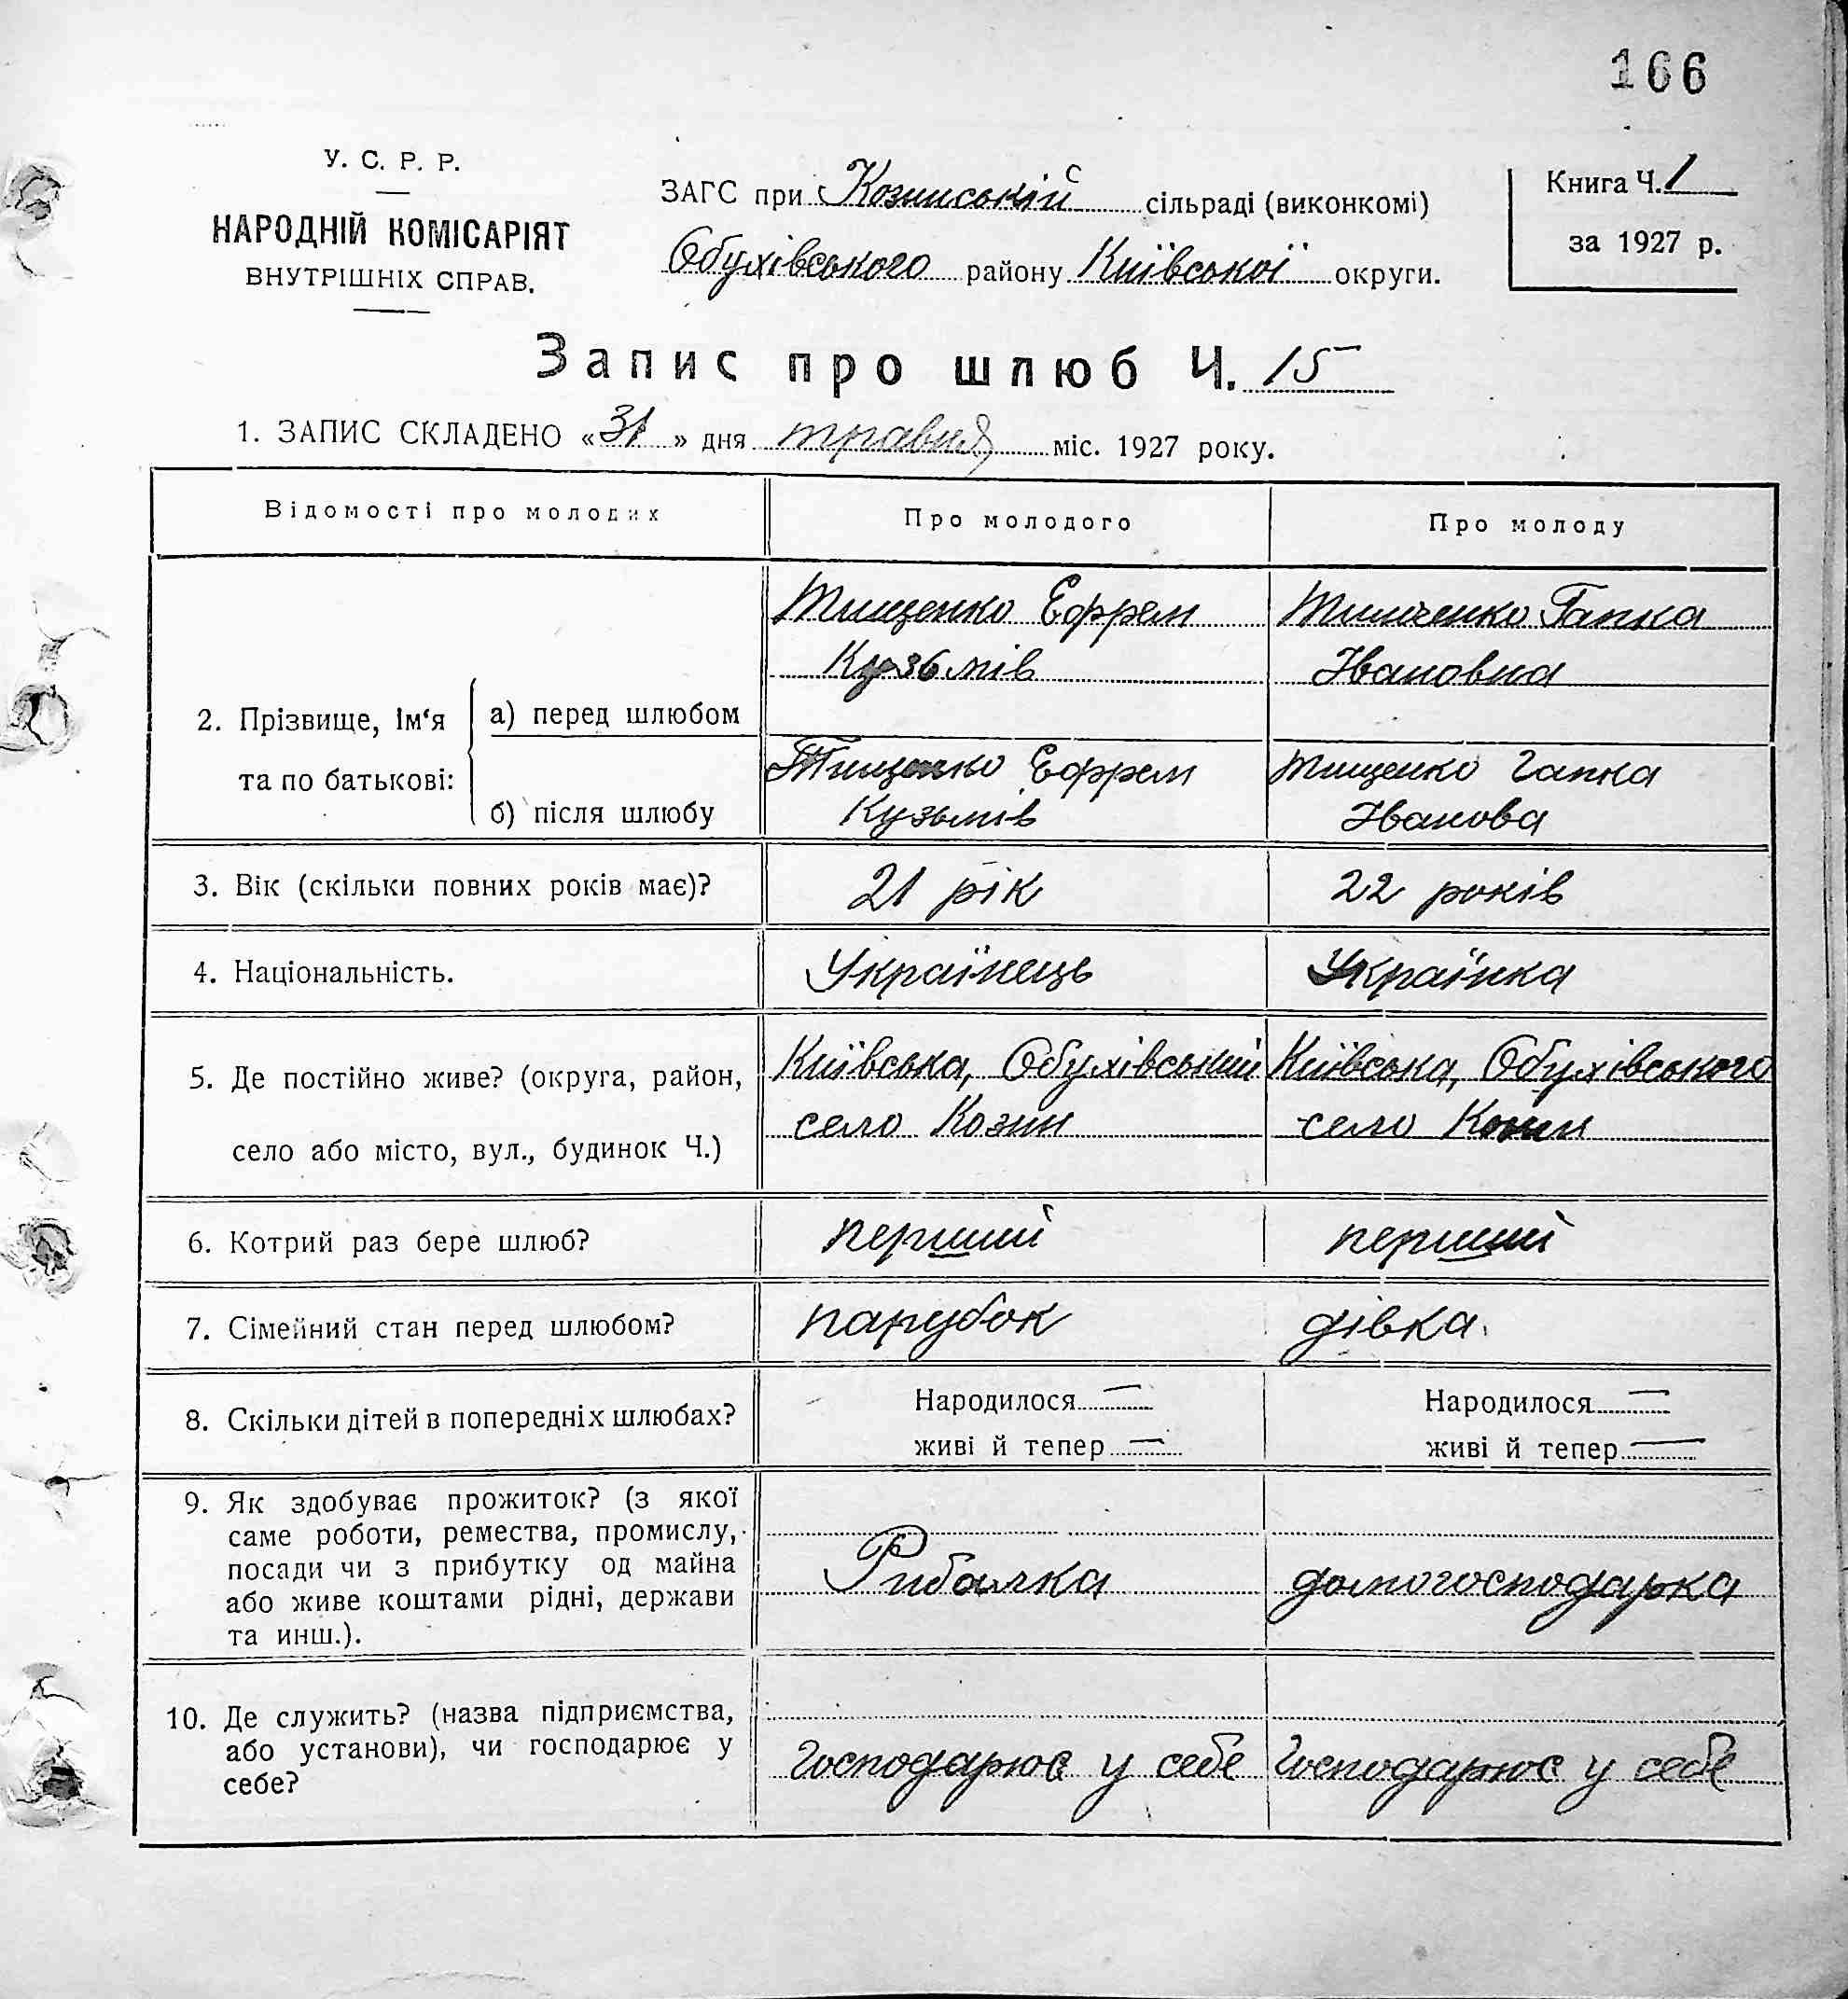 166
У. С. Р. Р.
НАРОДНІЙ КОМІСАРІЯТ
ВНУТРІШНІХ СПРАВ.
ЗАГС при Козинській с сільраді (виконкомі)
Обухівського району Київської округи.
Книга Ч. 1
за 1927 р.
Запис про шлюб Ч. 15
1. ЗАПИС СКЛАДЕНО «31» дня травня міс. 1927 року.
Відомості про молодих
Про молодого
Про молоду
2. Прізвище, ім‘я
та по батькові:
а) перед шлюбом
Тищенко Ефрем
Кузьмів
Тимченко Гапка
Івановна
б) після шлюбу
Тищенко Ефрем
Кузьмів
Тищенко Гапка
Іванова
3. Вік (скільки повних років має)?
21 рік
22 років
4. Національність.
Українець
Українка
5. Де постійно живе? (округа, район,
село або місто, вул., будинок Ч.)
Київська, Обухівський
село Козин
Київська, Обухівського
село Козин
6. Котрий раз бере шлюб?
перший
перший
7. Сімейний стан перед шлюбом?
парубок
дівка
8. Скільки дітей в попередніх шлюбах?
Народилося —
живі й тепер —
Народилося —
живі й тепер —
9. Як здобуває прожиток? (з якої
саме роботи, ремества, промислу,
посади чи з прибутку од майна
або живе коштами рідні, держави
та инш.).
Рибалка
домогосподарка
10. Де служить? (назва підприємства,
або установи), чи господарює у
себе?
Господарює у себе
Господарює у себе